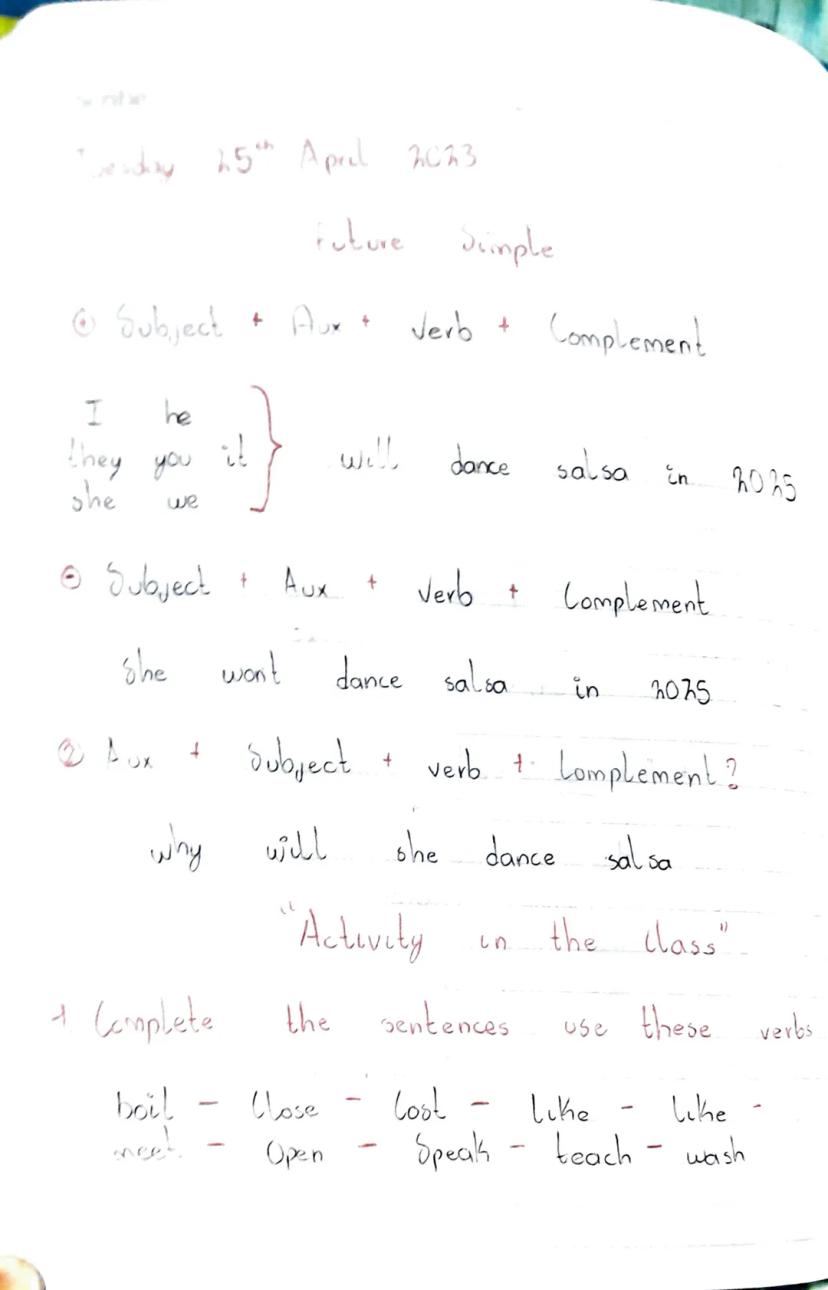 Tuesday 25th April 2023
Future Simple
⊕ Subject + Aux + Verb + Complement
I he
they you it } will dance salsa in 2025
she we
⊖ Subject + Aux + Verb + Complement
She wont dance salsa in 2025
? Aux + Subject + verb + Complement?
why will she dance salsa
"Activity in the Class"
1 Complete the sentences use these verbs
boil - Close - Cost - like - like -
meet - Open - Speak - teach - wash